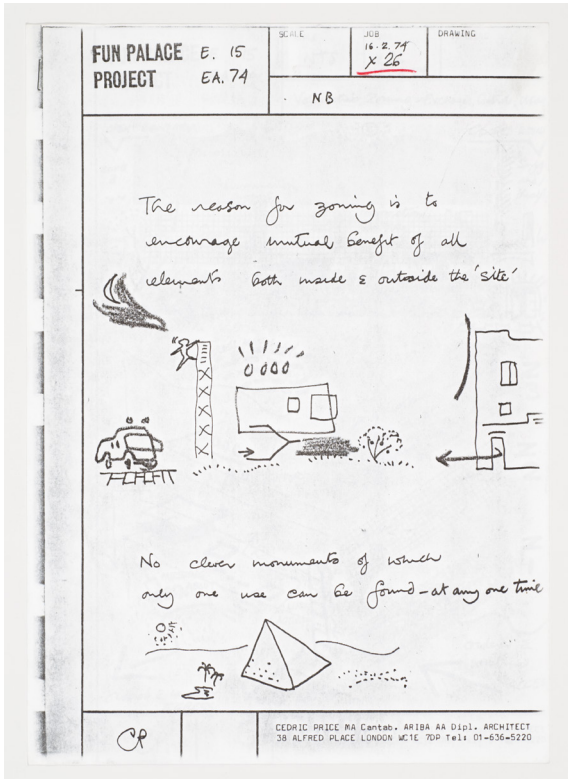 FUN PALACE E. 15
PROJECT EA. 74
SCALE
JOB
DRAWING
16.2.74
X 26
NB
The reason for zoning is to
encourage mutual benefit of all
elements both inside & outside the 'site'
No clever monuments of which
only one use can be found - at any one time
CP
CEDRIC PRICE MA Cantab. ARIBA AA Dipl. ARCHITECT
38 ALFRED PLACE LONDON WC1E 7DP Tel: 01-636-5220